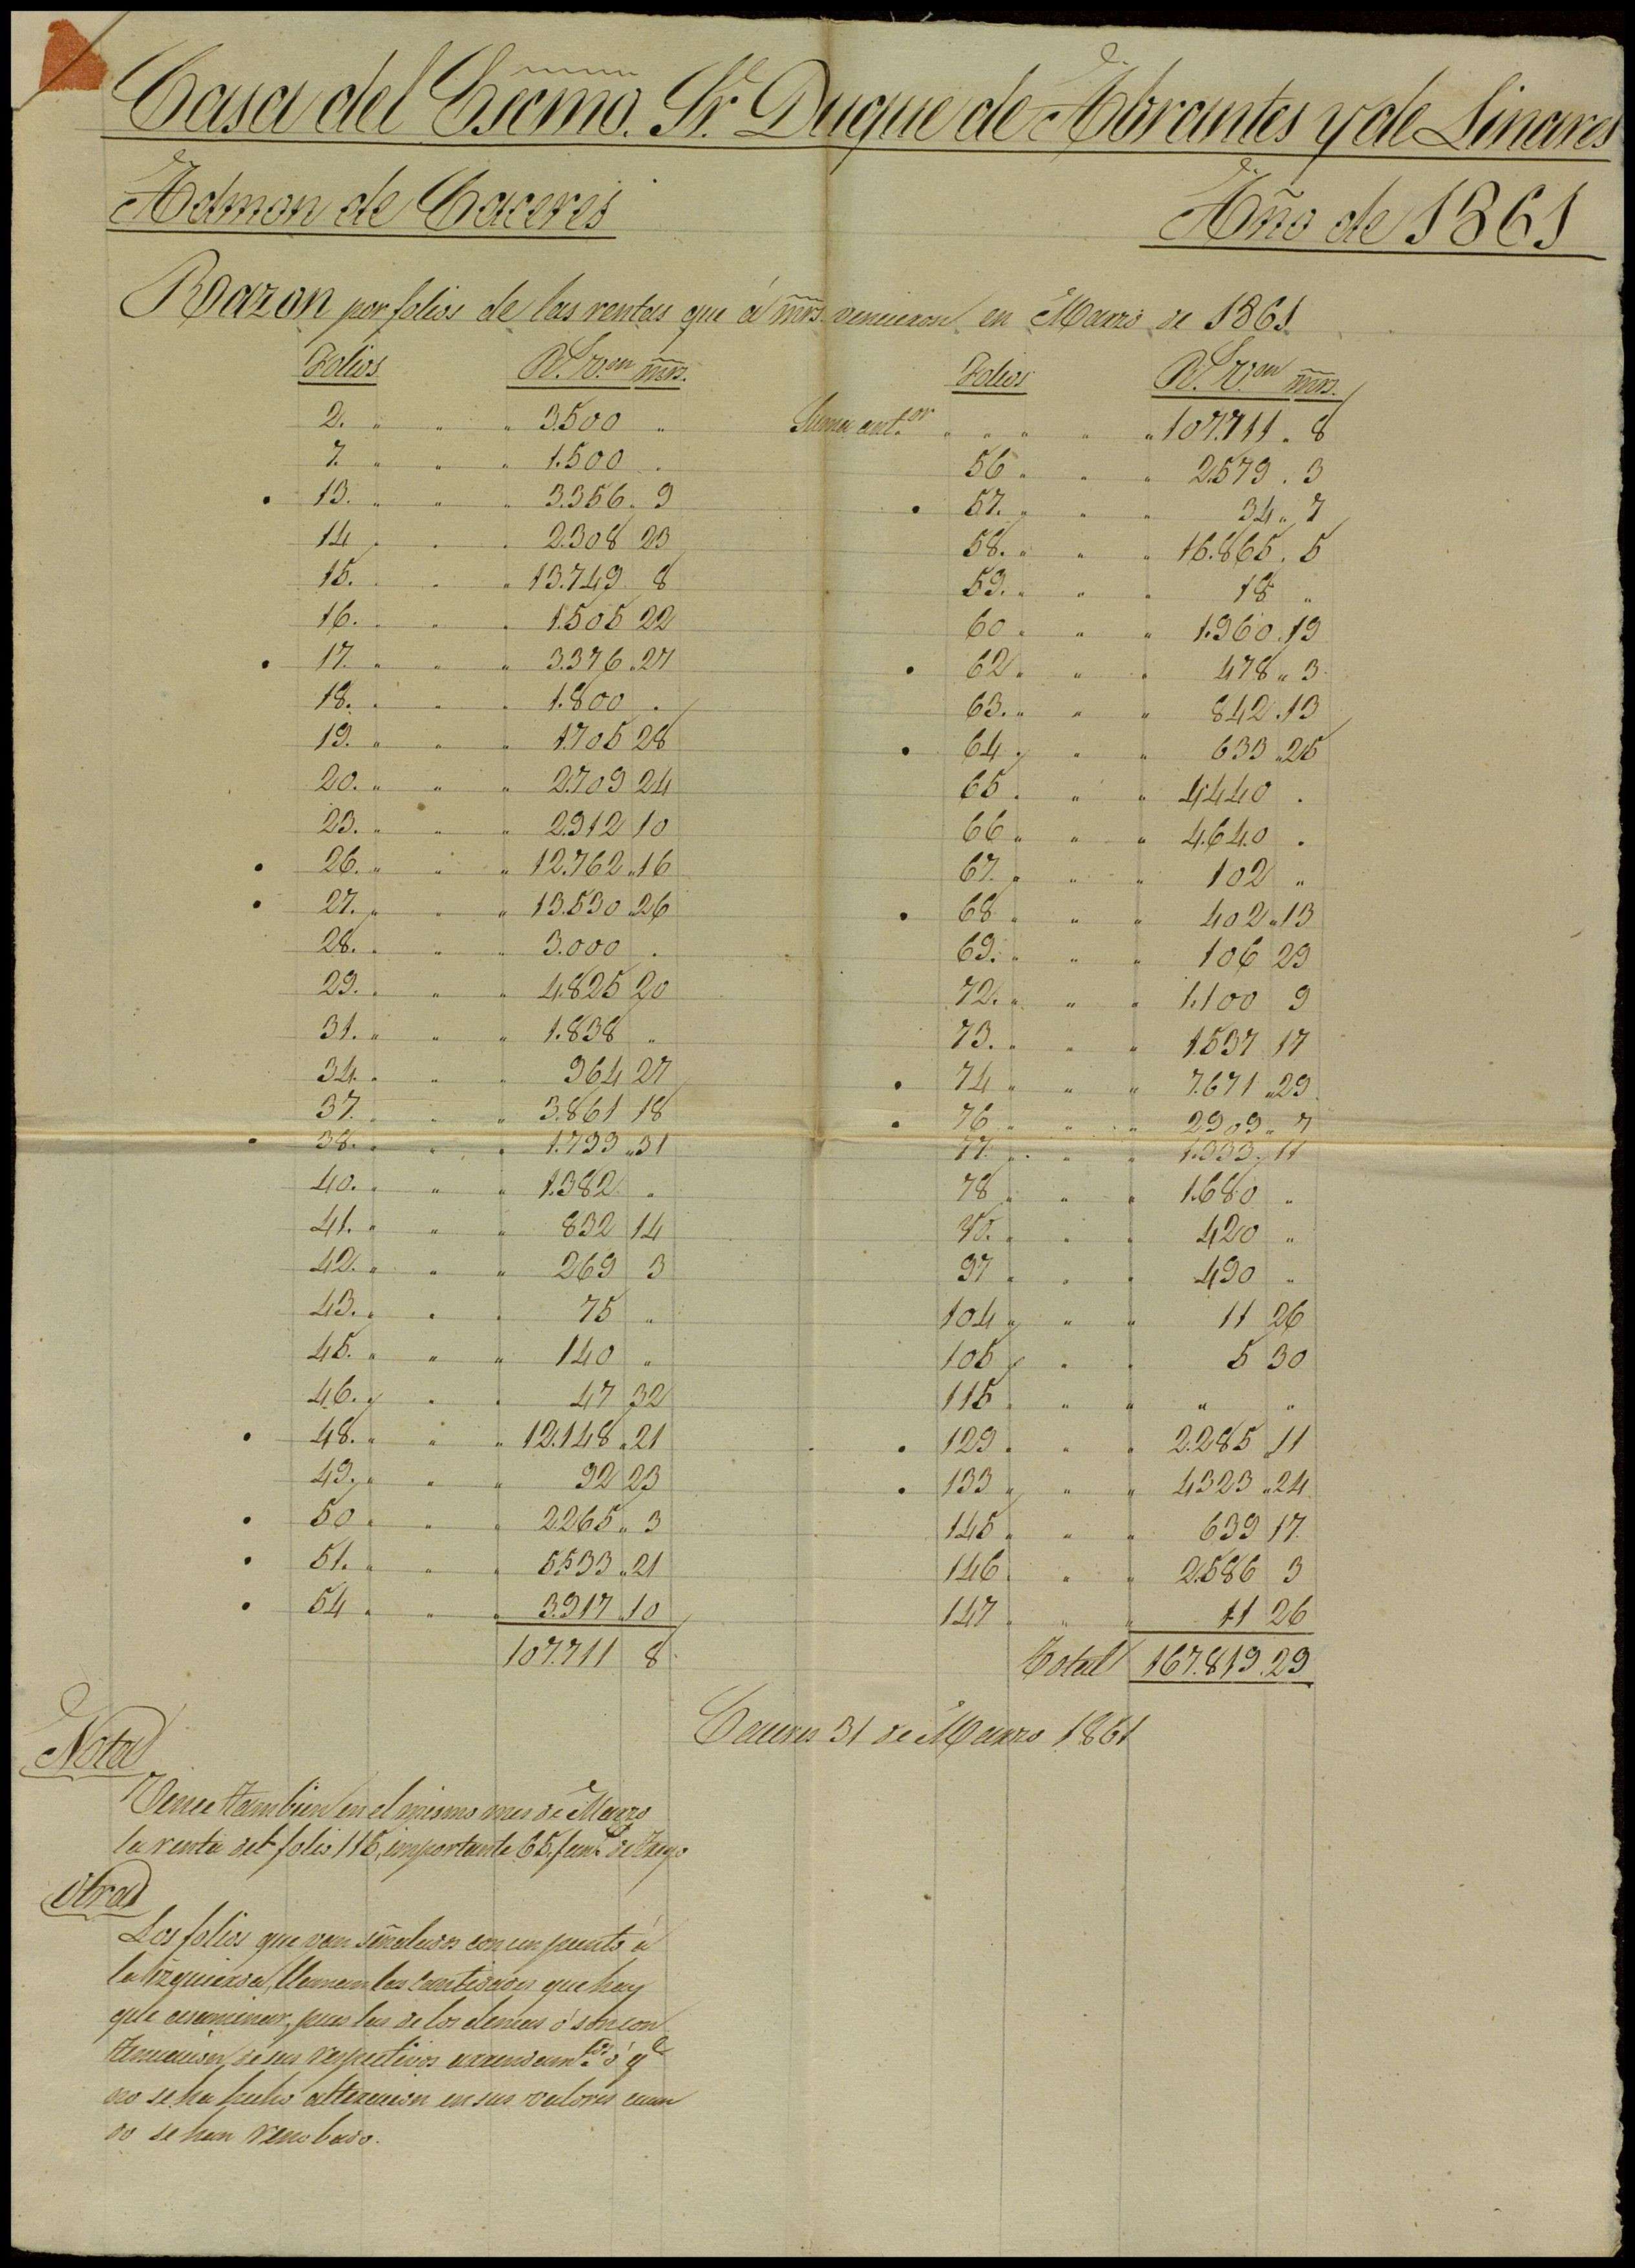 Casa del Escmo. Sr. Duque de Abrantes y de Linares
Admon de Caceres
Año de 1861
Razon por folios de las rentas que á mrs. vencieron en Marzo de 1861
Folios R.s V.on mrs.
2. " " " 3.500 "
7. " " " 1.500 "
• 13. " " " 3.356 " 9
14 " " " 2.308 23
15. " " " 13.749 8
16. " " " 1.505 22
• 17. " " " 3.376 " 27
18. " " " 1.800 "
19. " " " 1.705 28
20. " " " 2.709 24
23. " " " 2.912 10
• 26. " " " 12.762 " 16
• 27. " " " 13.530 " 26
28. " " " 3.000 "
29. " " " 4.825 20
31. " " " 1.838 "
34. " " " 964 27
37. " " " 3.861 18
• 38. " " " 1.799 " 31
40. " " " 1.382 "
41. " " " 832 14
42. " " " 269 3
43. " " " 75 "
45. " " " 140 "
46. " " " 47 32
• 48. " " " 12.148 " 21
49. " " " 92 23
• 50 " " " 2.265 " 3
• 51. " " " 5.533 " 21
• 54 " " " 3.917 " 10
107.711 8
Folios R.s V.on mrs.
Suma ant.or " " " " " 107.711 " 8
56 " " " 2.579 . 3
• 57. " " " 34 " 7
58. " " " 16.865 . 5
59. " " " 18 "
60 " " " 1.960 . 19
• 62 " " " 478 " 3
63. " " " 842 . 13
• 64 " " " 633 " 25
65 " " " 4.440 .
66 " " " 4.640 .
67. " " " 102 "
• 68 " " " 402 " 13
69. " " " 106 29
72. " " " 1.100 9
73. " " " 1.537 17
• 74 " " " 7.671 " 29
• 76 " " " 2909 " 7
77. " " " 1.333 . 11
78 " " " 1.680 "
" " " 420 "
97 " " " 490 "
104 " " " 11 26
105 " " " 5 30
115 " " " " "
• 129 " " " 2.285 11
• 133 " " " 4323 " 24
145 " " " 639 17
146 " " " 2.586 3
147 " " " 11 26
Total 167.819 . 29
Caceres 31 de Marzo 1861
Nota
Vence tambien en el mismo mes de Marzo
la renta del folio 115, importante 65, fan.s de trigo
Otra
Los folios que van señalados con un punto á
la izquierda, llaman las cantidades que hay
que ecsaminar, pues las de los demas ó son con
tinuacion de sus respectivos arrendam.tos ó q.e
no se ha hecho alteracion en sus valores cuan
do se han renobado.